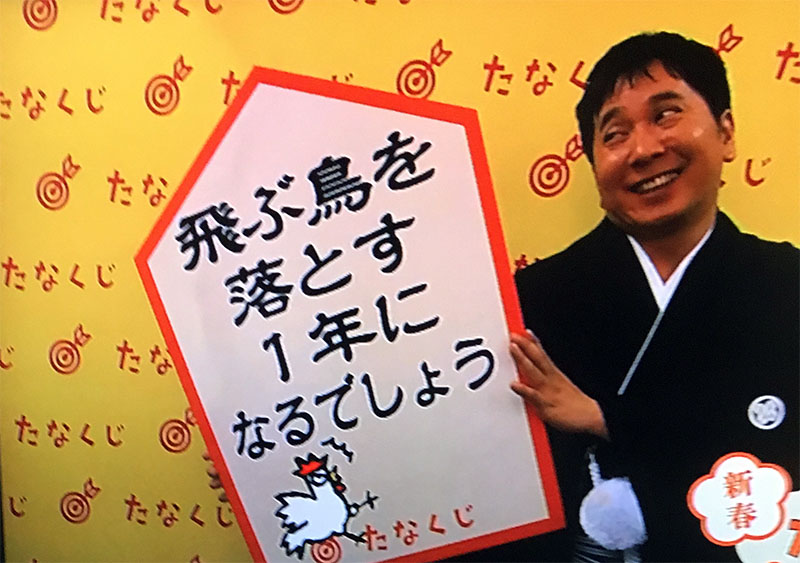 飛ぶ鳥を
落とす
1年に
なるでしょう
たなくじ
新春
たなくじ
たなくじ
たなくじ
たなくじ
たなくじ
たなくじ